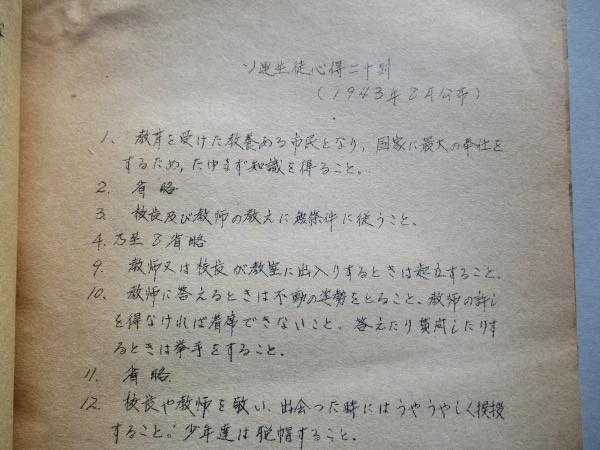 ソ連生徒心得二十則
(1943年8月公布)
1. 教育を受けた教養ある市民となり、国家に最大の奉仕を
するため、たゆまず知識を得ること。
2. 省略
3. 校長及び教師の教えに無條件に従うこと、
4. 乃至8省略
9. 教師又は校長が教室に出入りするときは起立すること、
10. 教師に答えるときは不動の姿勢をとること、教師の許し
を得なければ着席できないこと。答えたり質問したりす
るときは挙手をすること、
11. 省略.
12. 校長や教師を敬い、出会つた時にはうやうやしく挨拶
すること。少年達は脱帽すること。